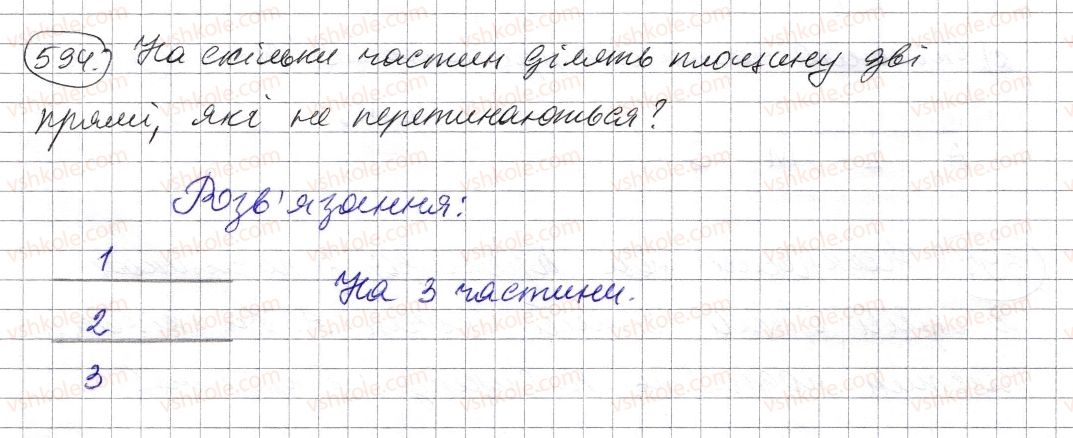 594. На скільки частин ділять площину дві
прямі, які не перетинаються?
Розв'язання:
1
На 3 частини.
2
3